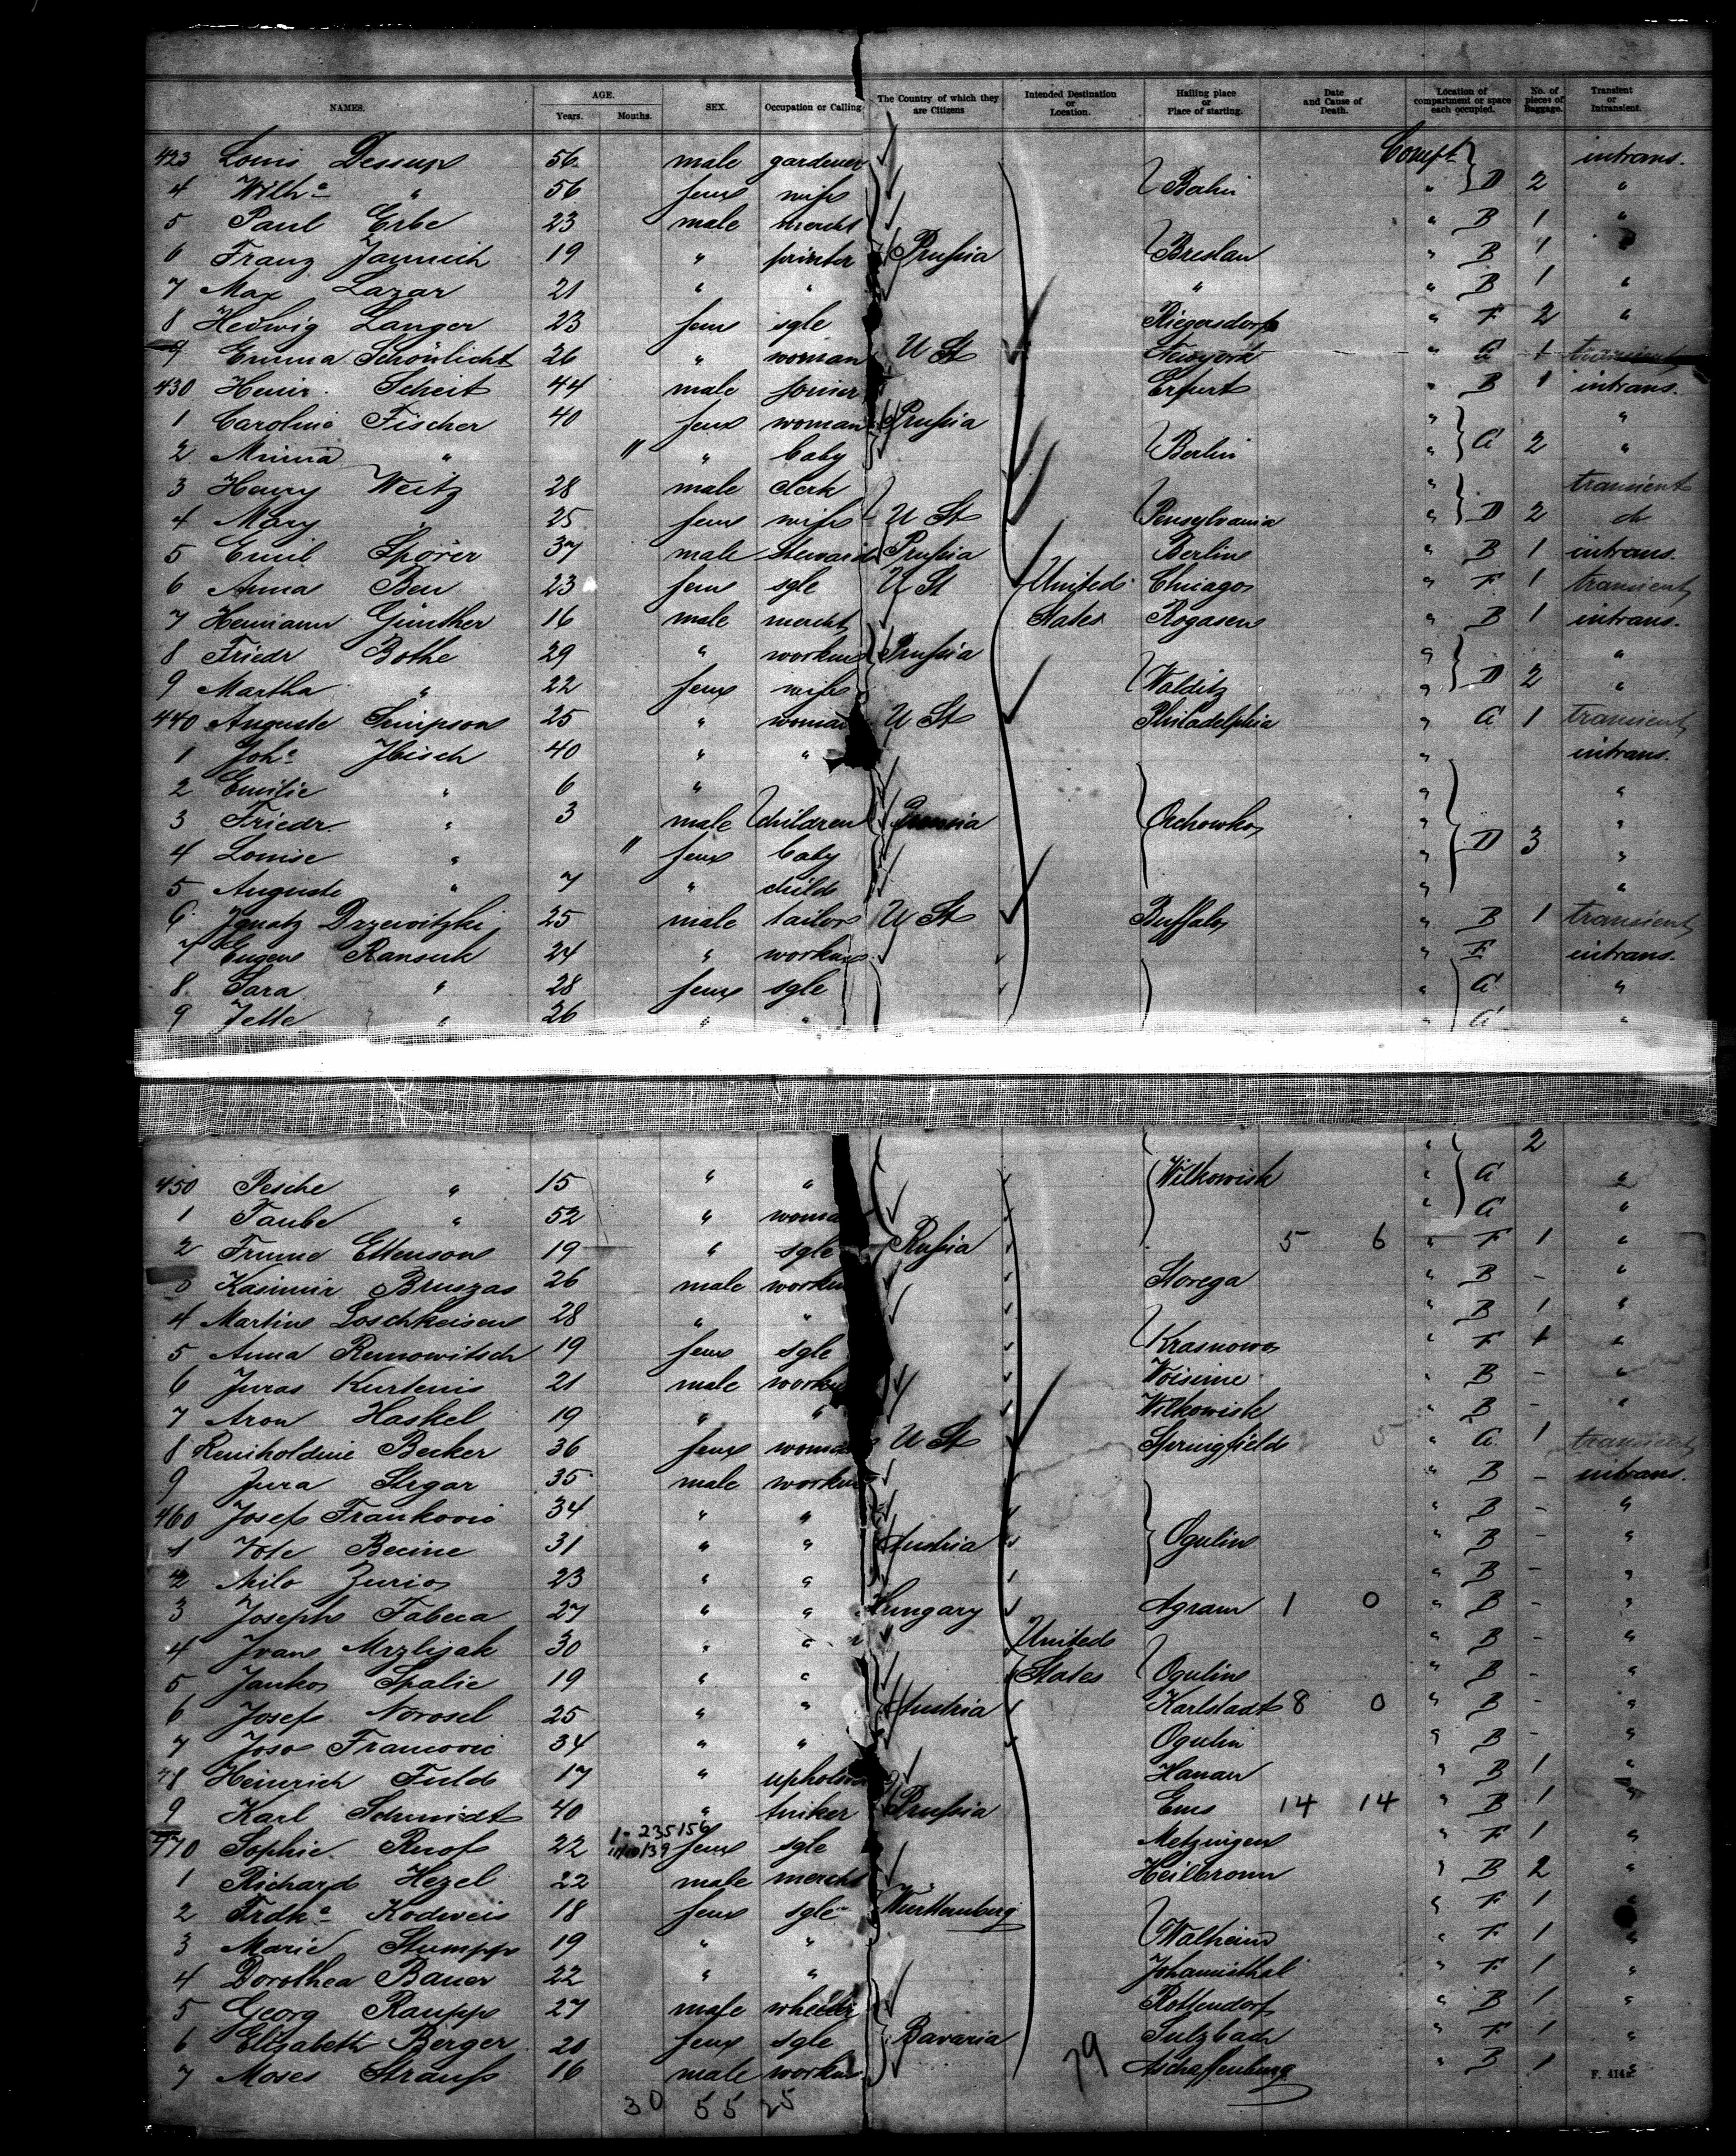 NAMES. AGE. Years. Months. SEX. Occupation or Calling The Country of which they are Citizens Intended Destination or Location. Hailing place or Place of starting. Date and Cause of Death. Location of compartment or space each occupied. No. of pieces of Baggage. Transient or Intransient.
423 Louis Dessup 56 male gardener Compt intrans.
4 Wilh.e " 56 fem wife " D 2 "
5 Paul Erbe 23 male mercht " B 1 "
6 Franz Jannich 19 " printer Prussia Breslau " B 1
7 Max Lazar 21 " " " " B 1 "
8 Hedwig Langer 23 fem sgle Riegersdorf " F 2 "
9 Emma Schönlicht 26 " woman U St Newyork " G 1 transient
430 Heinr. Scheit 44 male joiner Erfurt " B 1 intrans.
1 Caroline Fischer 40 fem woman Prussia " "
2 Minna " 11 " baby Berlin " G 2 "
3 Henry Weitz 28 male clerk " transient
4 Mary " 25 fem wife U St Pensylvania " D 2 do
5 Emil Spörer 37 male steward Prussia Berlin " B 1 intrans.
6 Anna Beu 23 fem sgle U St United Chicago " F 1 transient
7 Hermann Günther 16 male mercht States Rogasen " B 1 intrans.
8 Friedr Bothe 29 " workm Prussia " "
9 Martha " 22 fem wife Walditz " D 2 "
440 Auguste Simpson 25 " woman U St Philadelphia " G 1 transient
1 Joh.e Jbisch 40 " " " intrans.
2 Emilie " 6 " " "
3 Friedr. " 3 male children Orchowko " "
4 Louise " 11 fem baby " D 3 "
5 Auguste " 7 " child " "
6 Ignatz Drzewitzki 25 male tailor U St Buffalo " B 1 transient
7 Eugen Ransuk 24 " workm " F intrans.
8 Sara " 28 fem sgle " G "
9 Jette " 26 " " " G "
" 2
450 Pesche " 15 " " Wilkowisk " G "
1 Taube " 52 " woma " G "
2 Frume Ettenson 19 " sgle Russia 5 6 " F 1 "
3 Kasimir Bruszas 26 male workm Storega " B - "
4 Martin Loschkeisen 28 " " " B 1 "
5 Anna Remowitsch 19 fem sgle Krasnowo " F 1 "
6 Juras Kurtenis 21 male workm Woisime " B - "
7 Aron Haskel 19 " " Wilkowisk " B - "
8 Reinholdine Becker 36 fem woma U St Springfield 5 " G 1 transient
9 Jura Stigar 35 male workm " B - intrans.
460 Josef Frankovic 34 " " " B - "
1 Vote Becine 31 " " Austria Ogulin " B - "
2 Milo Zurio 23 " " " B - "
3 Joseph Fabeca 27 " " Hungary Agram 1 0 " B - "
4 Ivan Mrzljak 30 " " United " B - "
5 Janko Spalic 19 " " States Ogulin " B - "
6 Josef Norosel 25 " " Austria Karlstadt 8 0 " B - "
7 Joso Francovic 34 " " Ogulin " B - "
8 Heinrich Fuld 17 " upholst Hanau " B 1 "
9 Karl Schmidt 40 " tinker Prussia Ems 14 14 " B 1 "
1-235156
470 Sophie Ruof 22 11/10/39 fem sgle Metzingen " F 1 "
1 Richard Hezel 22 male mercht Heilbronn " B 2 "
2 Frdk.e Kodweis 18 fem sgle Württemberg " F 1 "
3 Marie Stumpp 19 " " Walheim " F 1 "
4 Dorothea Bauer 22 " " Johannisthal " F 1 "
5 Georg Raupp 27 male Rottendorf " B 1 "
6 Elisabeth Berger 20 fem sgle Bavaria Sulzbach " F 1 "
7 Moses Strauss 16 male workm 79 Aschaffenburg " B 1 "
F. 414
30 55 25